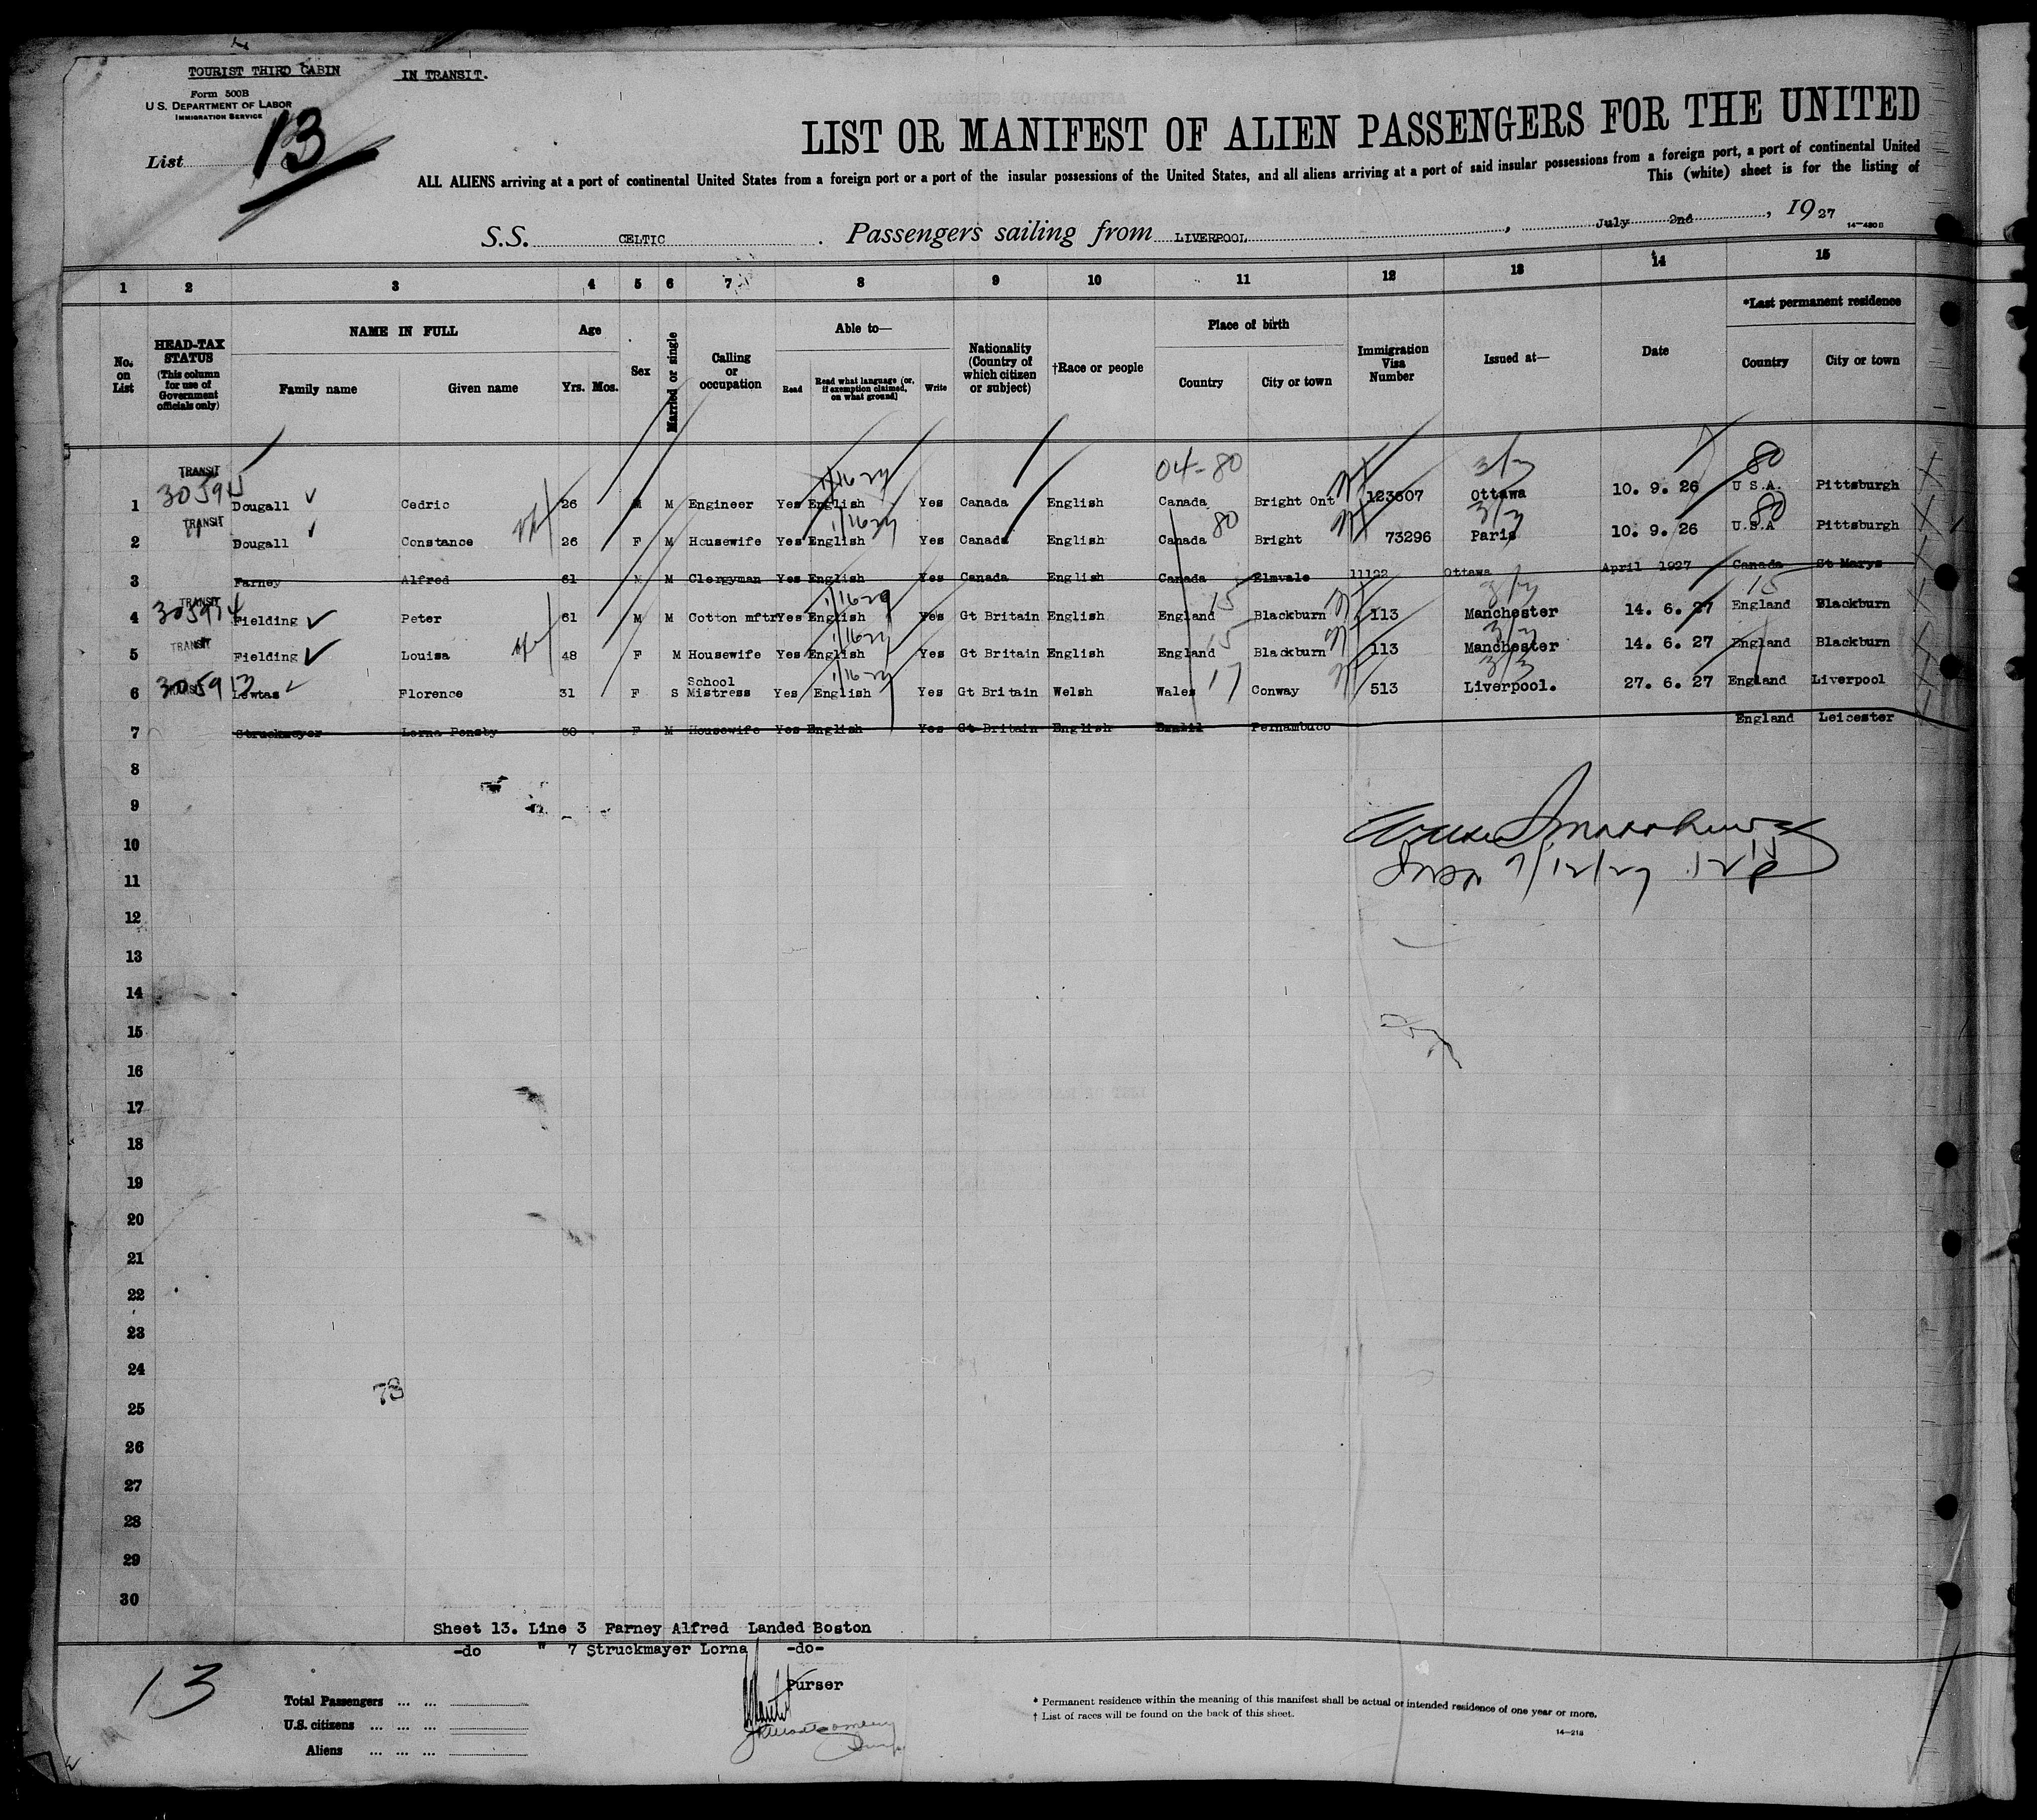 TOURIST THIRD CABIN IN TRANSIT.
Form 500B
U.S. DEPARTMENT OF LABOR
IMMIGRATION SERVICE
List 13
LIST OR MANIFEST OF ALIEN PASSENGERS FOR THE UNITED
ALL ALIENS arriving at a port of continental United States from a foreign port or a port of the insular possessions of the United States, and all aliens arriving at a port of said insular possessions from a foreign port, a port of continental United
This (white) sheet is for the listing of
S.S. CELTIC . Passengers sailing from LIVERPOOL , July 2nd , 1927
14-480B
1 2 3 4 5 6 7 8 9 10 11 12 13 14 15
No. on List
HEAD-TAX STATUS (This column for use of Government officials only)
NAME IN FULL
Family name Given name
Age
Yrs. Mos.
Sex
Married or single
Calling or occupation
Able to—
Read Read what language (or, if exemption claimed, on what ground) Write
Nationality (Country of which citizen or subject)
†Race or people
Place of birth
Country City or town
Immigration Visa Number
Issued at—
Date
*Last permanent residence
Country City or town
TRANSIT 1/16-27 04-80 3/3 80
1 30594 Dougall Cedric 26 M M Engineer Yes English Yes Canada English Canada Bright Ont 123607 Ottawa 10. 9. 26 U S.A. Pittsburgh
TRANSIT 1/16-27 80 3/3 80
2 Dougall Constance 26 F M Housewife Yes English Yes Canada English Canada Bright 73296 Paris 10. 9. 26 U.S.A Pittsburgh
3 Farney Alfred 61 M M Clergyman Yes English Yes Canada English Canada Elmvale 11122 Ottawa April 1927 Canada St Marys
TRANSIT 1/16-29 15 3/3 15
4 305914 Fielding Peter 61 M M Cotton mftr Yes English Yes Gt Britain English England Blackburn 113 Manchester 14. 6. 27 England Blackburn
TRANSIT 1/16-27 15 3/3
5 Fielding Louisa 48 F M Housewife Yes English Yes Gt Britain English England Blackburn 113 Manchester 14. 6. 27 England Blackburn
TRANSIT 1/16-27 17 3/3
6 305913 Lewtas Florence 31 F S School Mistress Yes English Yes Gt Britain Welsh Wales Conway 513 Liverpool. 27. 6. 27 England Liverpool
7 Struckmeyer Lorna Ponsby 30 F M Housewife Yes English Yes Gt Britain English Brazil Pernambuco England Leicester
8
9
10
11
7/12/27
12
13
14
15
16
17
18
19
20
21
22
23
24
73
25
26
27
28
29
30
Sheet 13. Line 3 Farney Alfred Landed Boston
-do " 7 Struckmayer Lorna -do-
Purser
13
Total Passengers ... ...
U.S. citizens ... ... ...
Aliens ... ... ...
* Permanent residence within the meaning of this manifest shall be actual or intended residence of one year or more.
† List of races will be found on the back of this sheet.
14-218